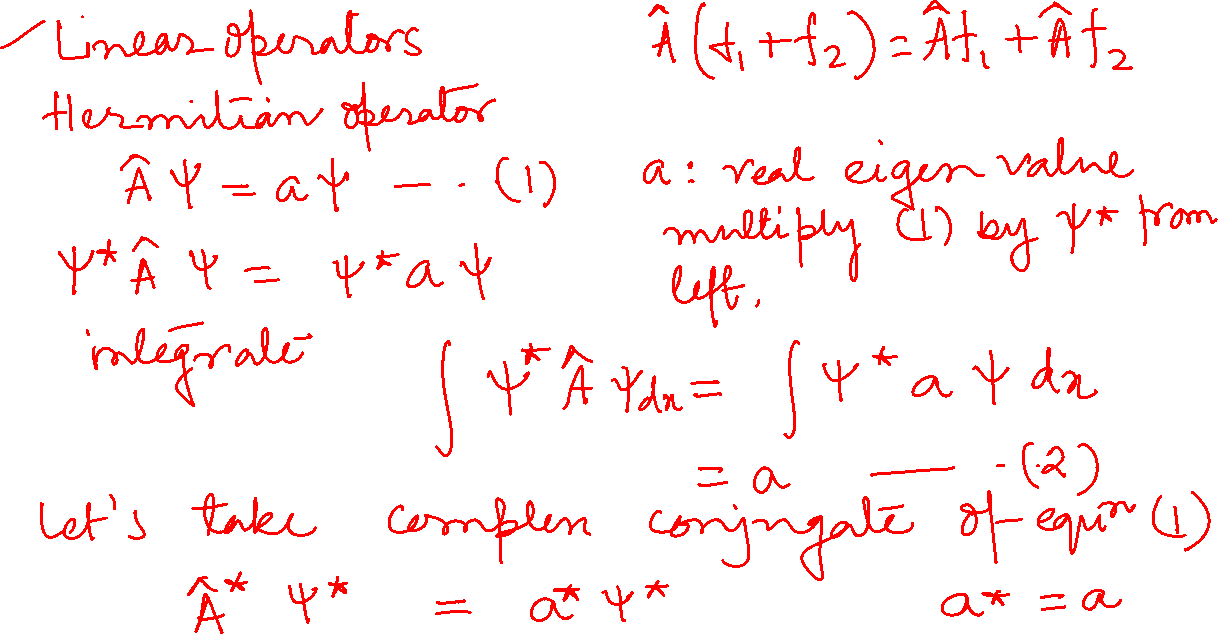 Linear operators
Â (f₁ + f₂) = Âf₁ + Âf₂
Hermitian operator
Â Ψ = a Ψ — - - (1)
a : real eigen value
multiply (1) by Ψ* from
left.
Ψ* Â Ψ = Ψ* a Ψ
integrate
∫ Ψ* Â Ψ dx = ∫ Ψ* a Ψ dx
= a —— - (2)
Let's take complex conjugate of equn (1)
Â* Ψ* = a* Ψ* a* = a